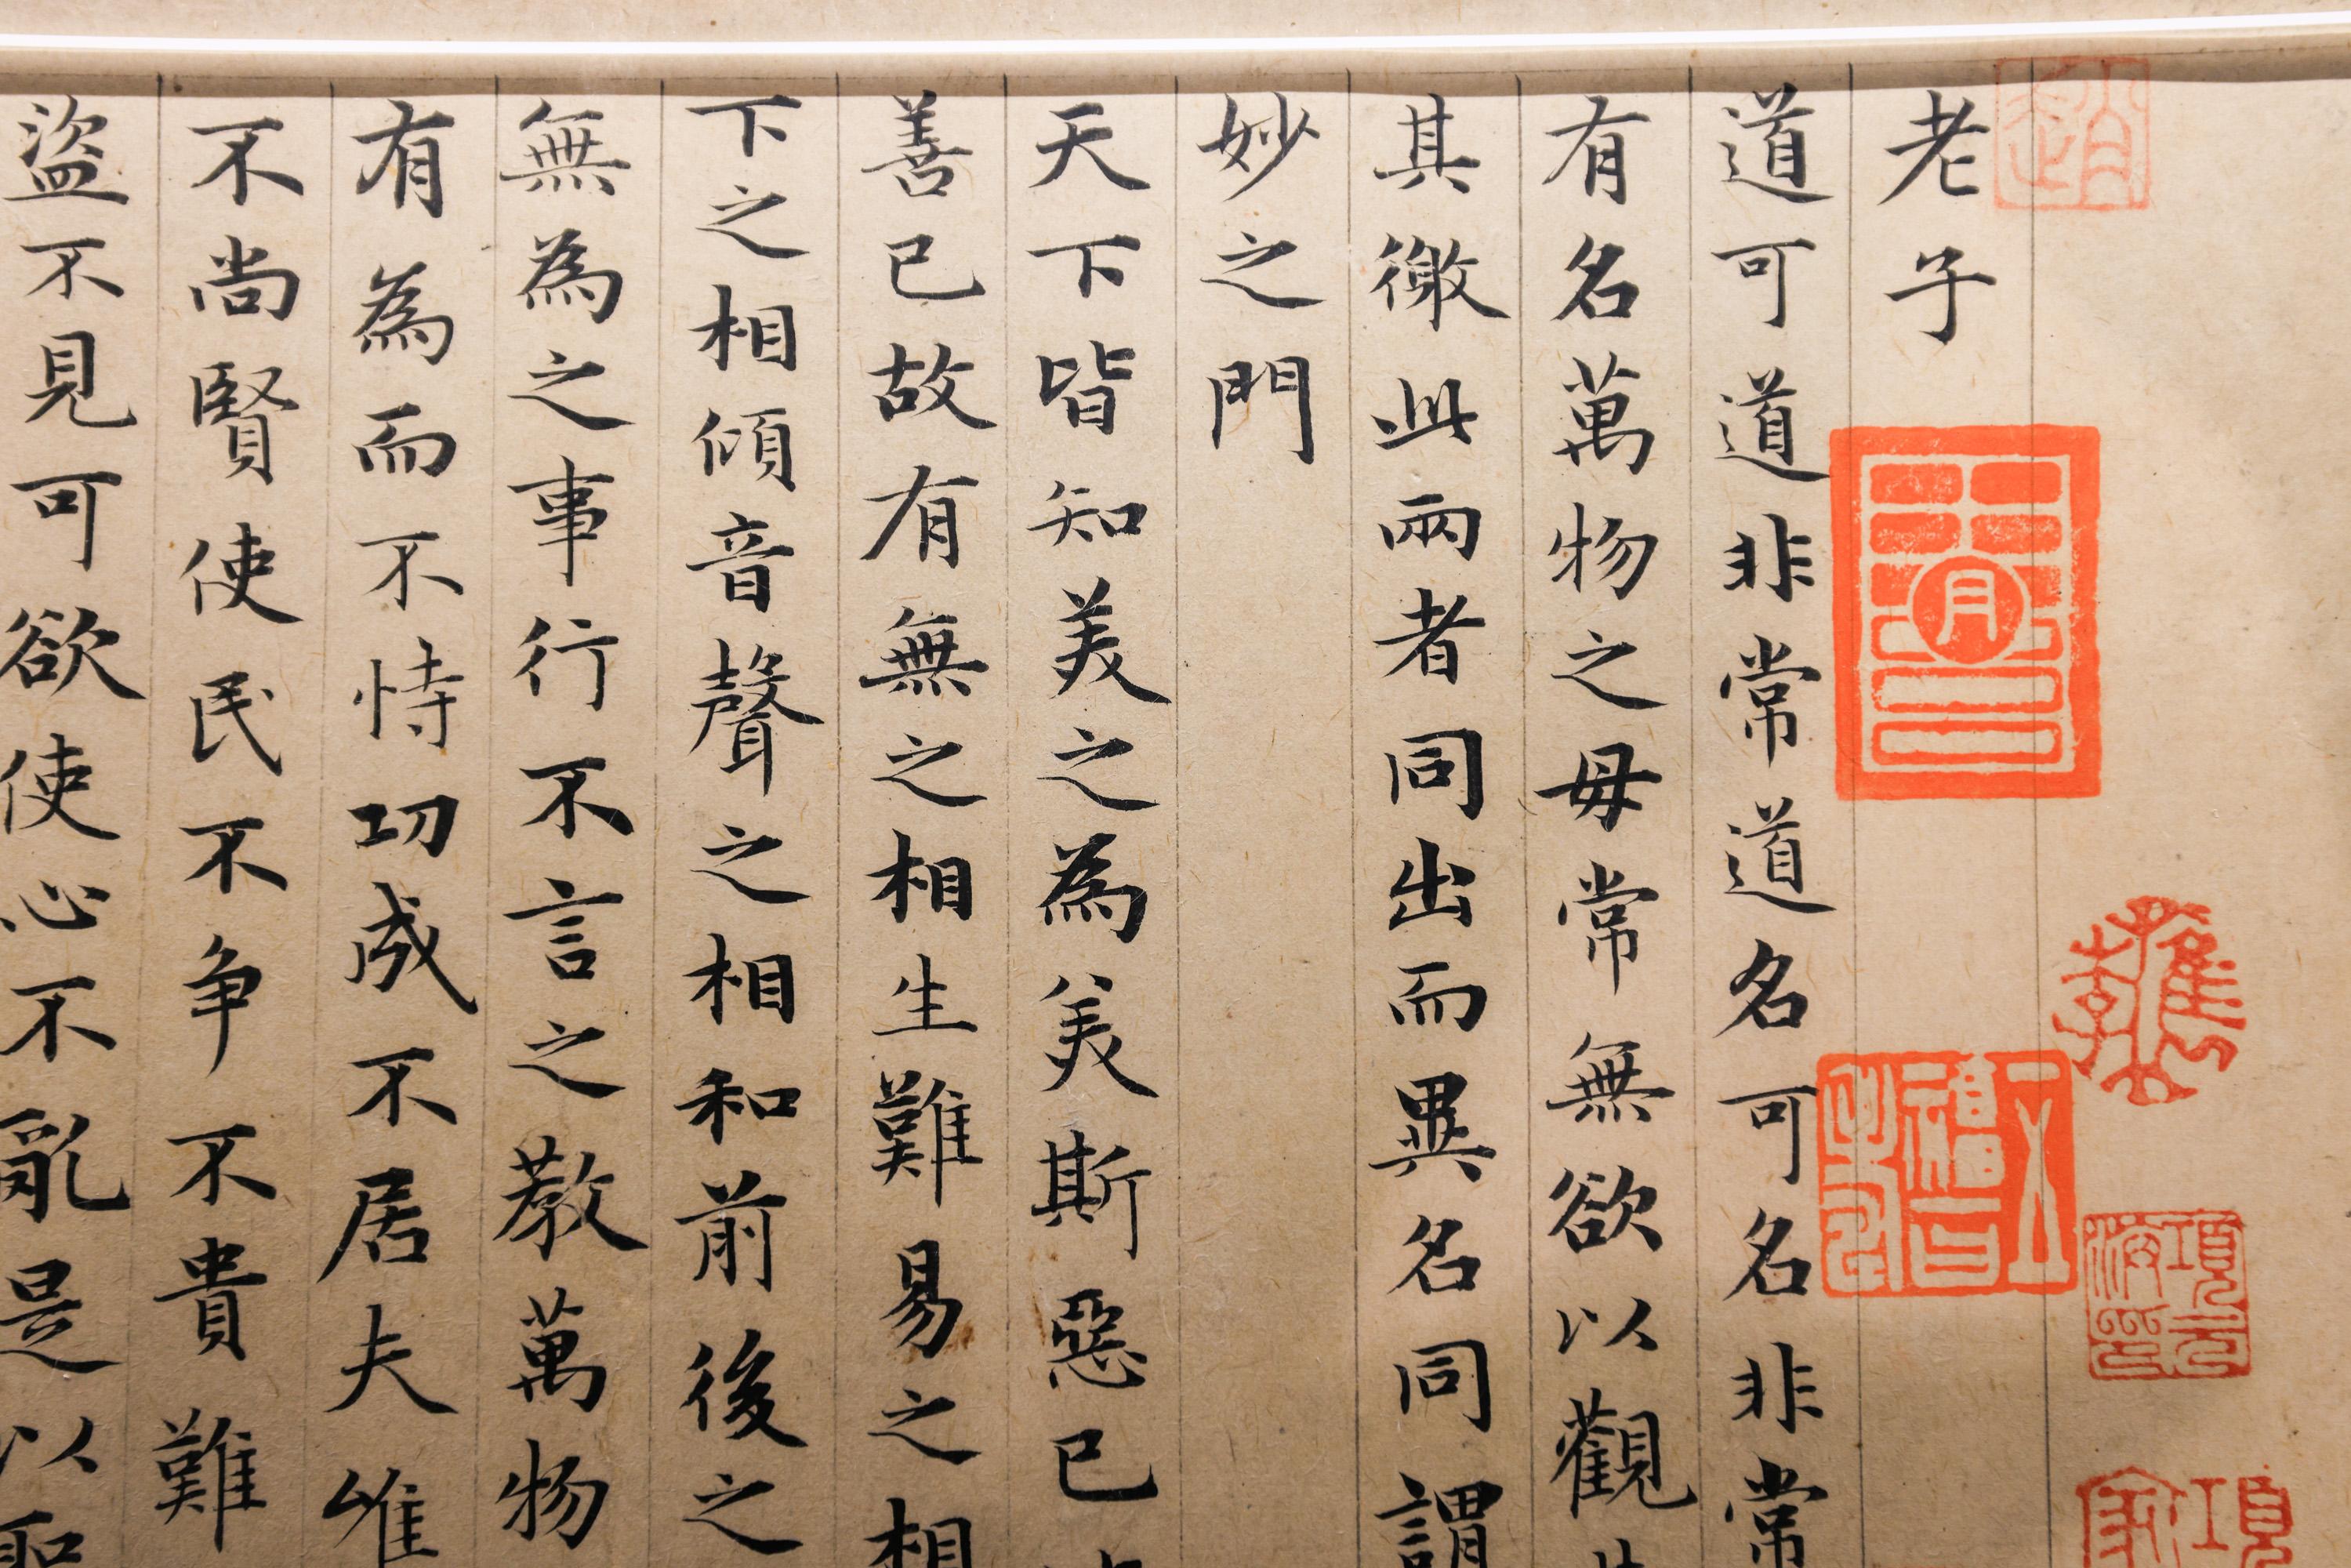 老子
道可道非常道名可名非常
有名萬物之母常無欲以觀
其徼此兩者同出而異名同謂
妙之門
天下皆知美之為美斯惡已
善已故有無之相生難易之相
下之相傾音聲之相和前後之
無為之事行不言之教萬物
有為而不恃功成不居夫唯
不尚賢使民不争不貴難
盜不見可欲使心不亂是以聖